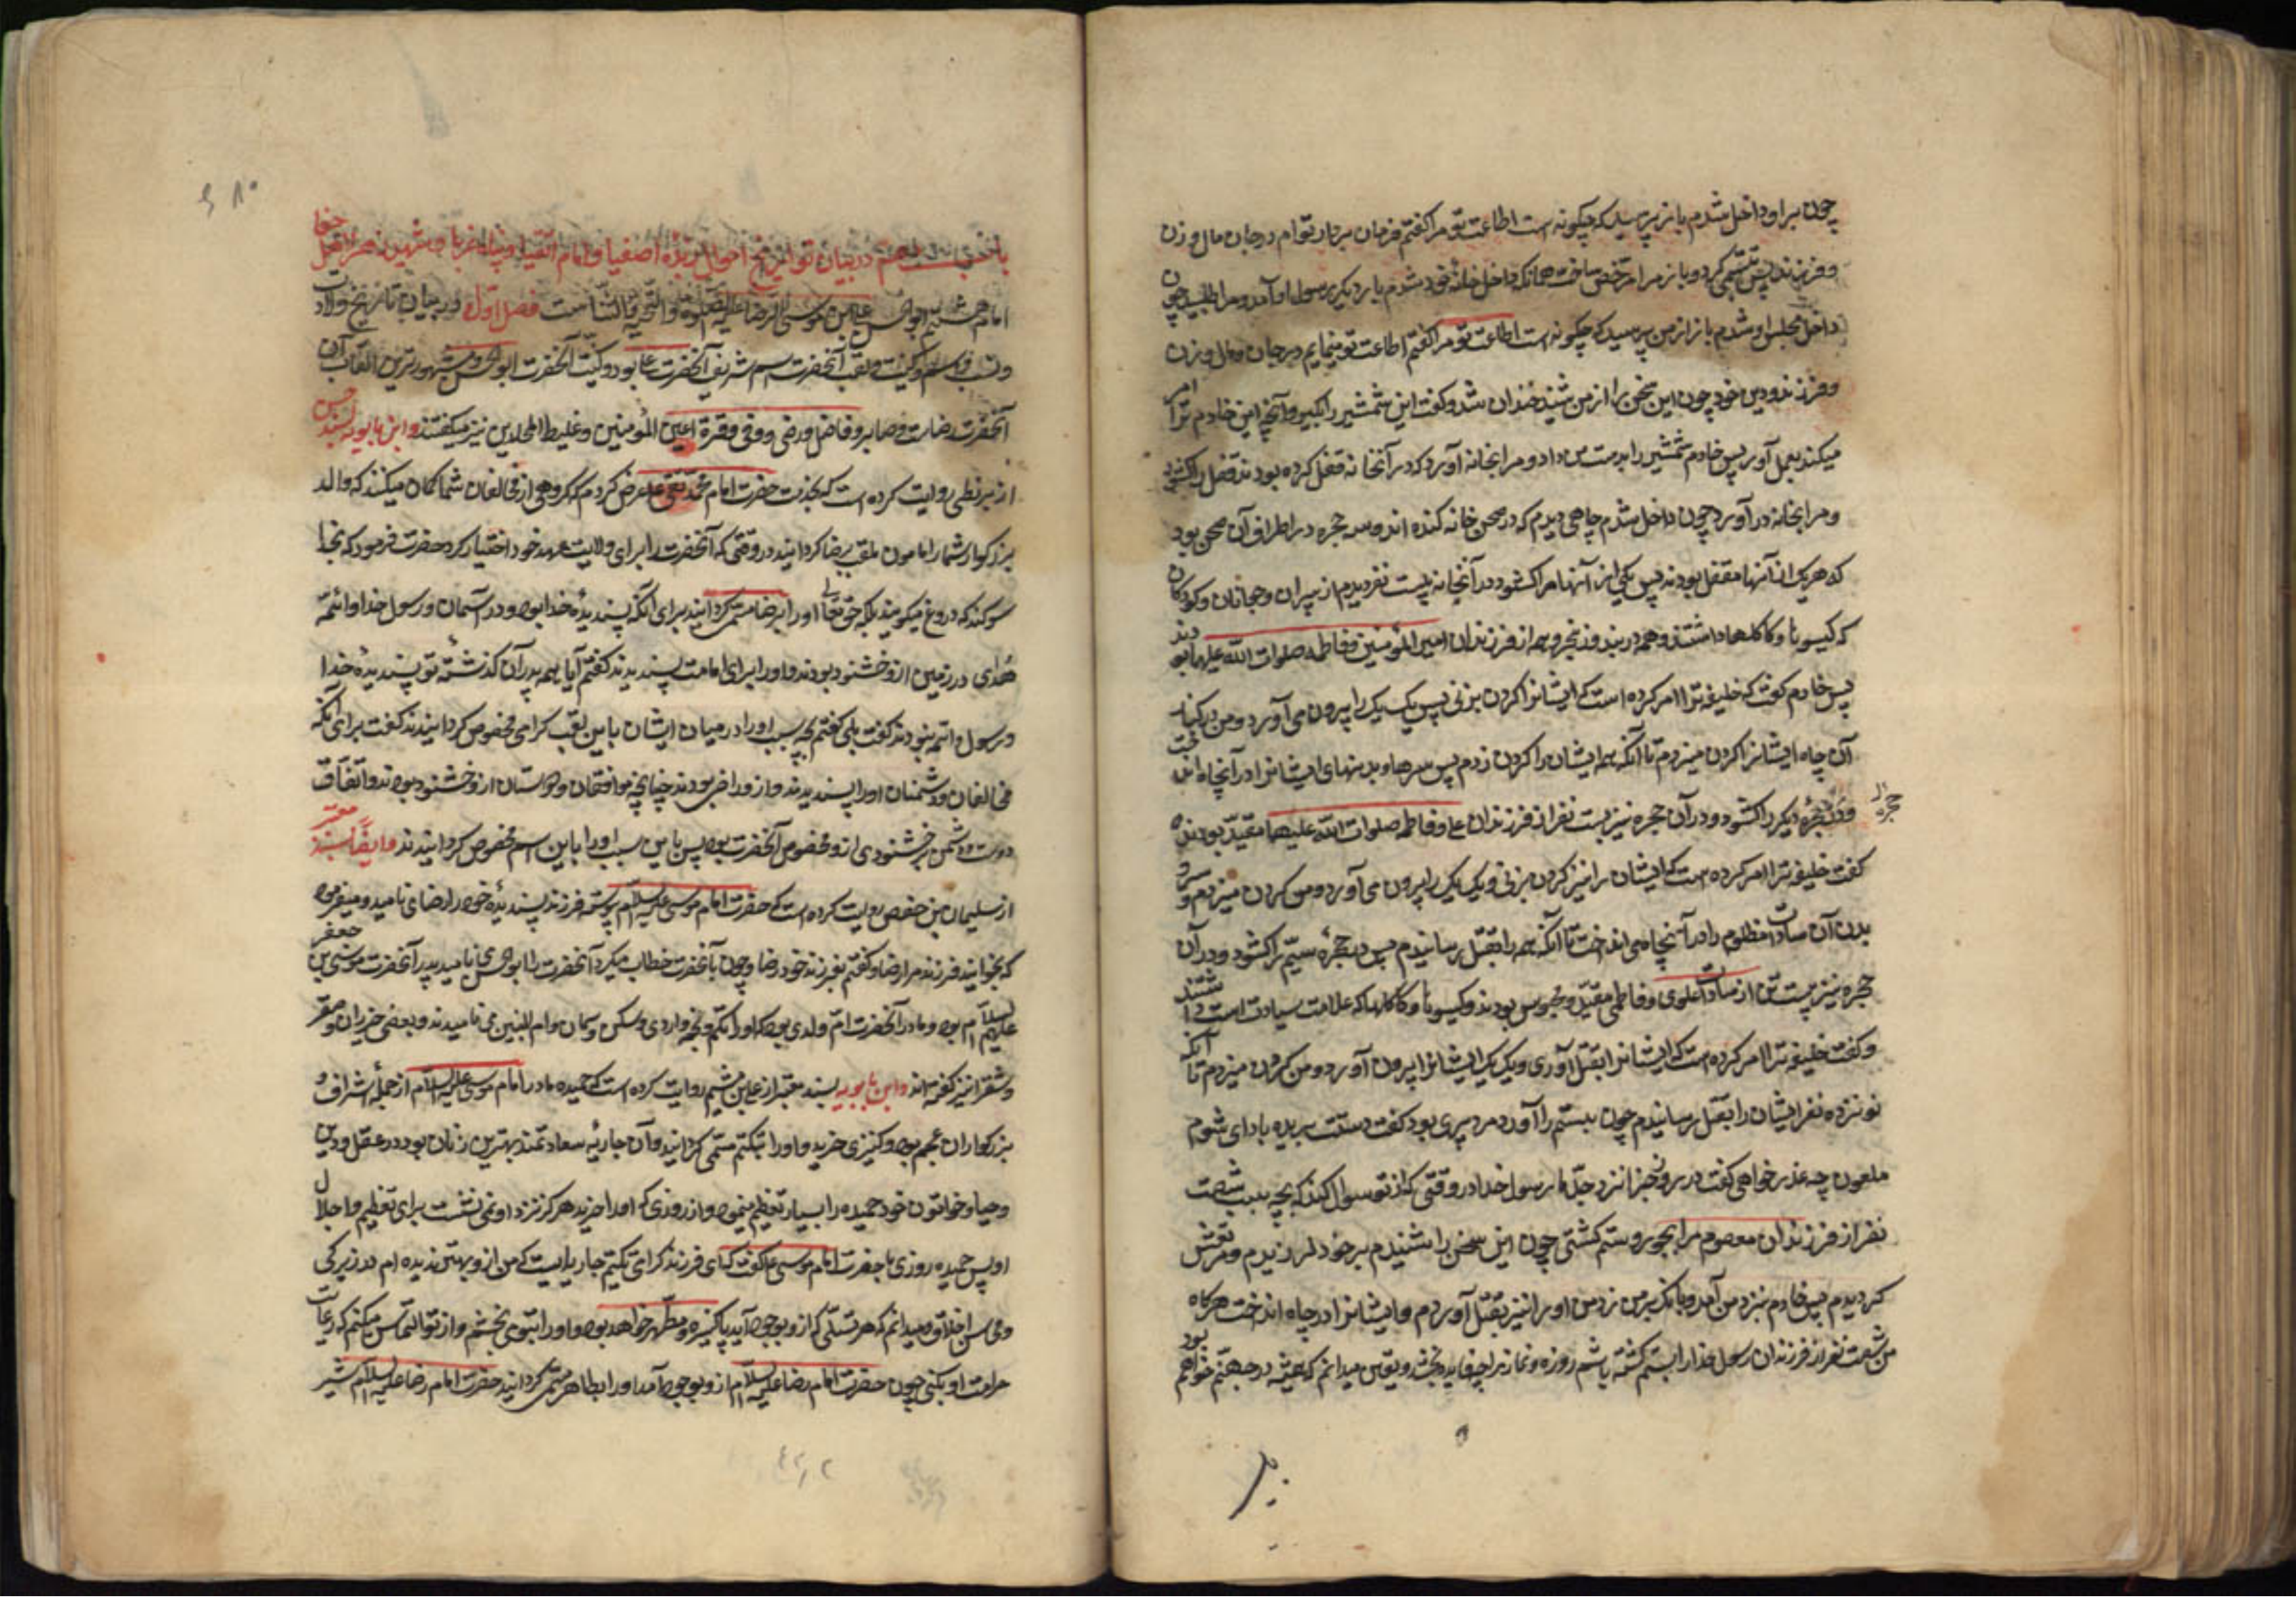 چون براو داخل شدم باز پرسید که چگونه است اطاعت تو مرا گفتم فرمان بردار توام در جان مال و زن
و فرزند پس تبسمی کرد و باز مرا مرخص ساخت همانکه داخل خانه خود شدم بار دیگر رسول او آمد و مرا طلبید چون
داخل مجلس او شدم باز از من پرسید که چگونه است اطاعت تو مرا گفتم اطاعت تو مینمایم در جان و مال و زن
و فرزند و دین خود چون این سخن را از من شنید خندان شد و گفت این شمشیر را بگیر و آنچه این خادم ترا امر
میکند بعمل آور پس خادم شمشیر را بدست من داد و مرا بخانه آورد که در آنخانه قفل کرده بودند قفل را گشود
و مرا بخانه در آورد چون داخل شدم چاهی دیدم که در صحن خانه کنده اند و سه حجره در اطراف آن صحن بود
که هریک از آنها مقفل بود پس یکی از آنها مرا گشود در آنخانه بیست نفر دیدم از پیران و جوانان و کودکان
که گیسوها و کاکلها داشتند و همه در بند و زنجیر و همه از فرزندان امیر المؤمنین و فاطمه صلوات الله علیهما بودند
پس خادم گفت که خلیفه ترا امر کرده است که ایشانرا گردن بزنی پس یک یک را بیرون می آورد و من در کنار
آن چاه ایشانرا گردن میزدم تا آنکه همه ایشان را گردن زدم پس سرها و بدنهای ایشانرا در آنچاه انداخت
و در حجره دیگر را گشود و در آن حجره نیز بیست نفر از فرزندان علی و فاطمه صلوات الله علیهما مقید بودند
حجره
گفت خلیفه ترا امر کرده است که ایشان را نیز گردن بزنی و یک یک را بیرون می آورد و من گردن میزدم و سر و
بدن آن سادات مظلوم را در آنچاه می انداخت تا آنکه همه را بقتل رسانیدم پس در حجرهٔ سیم را گشود و در آن
حجره نیز بیست تن از سادات علوی و فاطمی مقید و محبوس بودند و گیسوها و کاکلها که علامت سیادت است داشتند
و گفت خلیفه ترا امر کرده است که ایشانرا بقتل آوری و یک یک ایشانرا بیرون آورد و من گردن میزدم تا آنکه
نوزده نفر ایشان را بقتل رسانیدم چون بیستم را آورد مرد پیری بود گفت دستت بریده باد ای شوم
ملعون چه عذر خواهی گفت در روز جزا نزد جدّ ما رسول خدا در وقتی که از تو سوال کند که بچه سبب شصت
نفر از فرزندان معصوم مرا بجور و ستم کشتی چون این سخن را شنیدم بر خود لرزیدم و مرتعش
گردیدم پس خادم نزد من آمد و بانگ بر من زد من او را نیز بقتل آوردم و ایشانرا در چاه انداخت هرگاه
من شصت نفر از فرزندان رسول خدا را بستم کشته باشم روزه و نماز مرا چه فایده بخشد و یقین میدانم که همیشه در جهنم خواهم بود
باب دهم در بیان تواریخ احوال زبده اصفیا و امام اتقیا
امام هشتم ابوالحسن علی بن موسی الرضا علیه الصلوة و التحیه و الثنا است فصل اول در بیان تاریخ ولادت
و نسب و اسم و کنیت و لقب آنحضرت اسم شریف آنحضرت علی بود و کنیت آنحضرت ابوالحسن و مشهورترین القاب آن
آنحضرت رضاست و صابر و فاضل و رضی و وفی و قرة اعین المؤمنین و غیظ الملحدین نیز میگفتند و ابن بابویه بسند حسن
از بزنطی روایت کرده است که بخدمت حضرت امام محمد تقی ع عرض کردم که گروهی از مخالفان شما گمان میکنند که والد
بزرگوار شما را مامون ملقب برضا گردانید در وقتی که آنحضرت را برای ولایت عهد خود اختیار کرد حضرت فرمود که بخدا
سوگند که دروغ میگویند بلکه حق تعالی او را برضا مسمی گردانید برای آنکه پسندیدهٔ خدا بود در آسمان و رسول خدا و ائمه
هدی در زمین ازو خشنود بودند و او را برای امامت پسندیدند گفتم آیا همه پدران گذشته تو پسندیدهٔ خدا
و رسول و ائمه نبودند گفت بلی گفتم بچه سبب او را در میان ایشان باین لقب گرامی مخصوص گردانیدند گفت برای آنکه
مخالفان و دشمنان او را پسندیدند و ازو راضی بودند چنانچه موافقان و دوستان ازو خشنود بودند و اتفاق
دوست و دشمن بر خشنودی ازو مخصوص آنحضرت بود پس باین سبب او را باین اسم مخصوص گردانیدند و ایضاً بسند معتبر
از سلیمان بن حفص روایت کرده است که حضرت امام موسی علیه السلام پیوسته فرزند پسندیدهٔ خود را رضا می نامید و میفرمود
که بخوانید فرزند مرا رضا و گفتم بفرزند خود رضا و چون بآنحضرت خطاب میکرد آنحضرت را ابوالحسن می نامید پدر آنحضرت موسی بن جعفر
علیهم السلام بود و مادر آنحضرت ام ولدی بود که او را تکتم و نجمه و اروی و سکن و سمان و ام البنین می نامیدند و بعضی خیزران و صقر
و شقرا نیز گفته اند و ابن بابویه بسند معتبر از علی بن میثم روایت کرده است که حمیده مادر امام موسی علیه السلام از جملهٔ اشراف و
بزرگواران عجم بود و کنیزی خرید و او را تکتم مسمی گردانید و آن جاریهٔ سعادتمند بهترین زنان بود در عقل و دین
و حیا و خواتون خود حمیده را بسیار تعظیم مینمود و از روزی که او را خرید هرگز نزد او نمی نشست برای تعظیم و اجلال
او پس حمیده روزی با حضرت امام موسی ع گفت که ای فرزند گرامی تکتم جاریه ایست که من ازو بهتر ندیده ام در زیرکی
و محاسن اخلاق و میدانم که هر نسلی که ازو بوجود آید پاکیزه و مطهر خواهد بود و او را بتو می بخشم و از تو التماس میکنم که رعایت
حرمت او بکنی چون حضرت امام رضا علیه السلام ازو بوجود آمد او را بطاهره مسمی گردانید حضرت امام رضا علیه السلام شیر